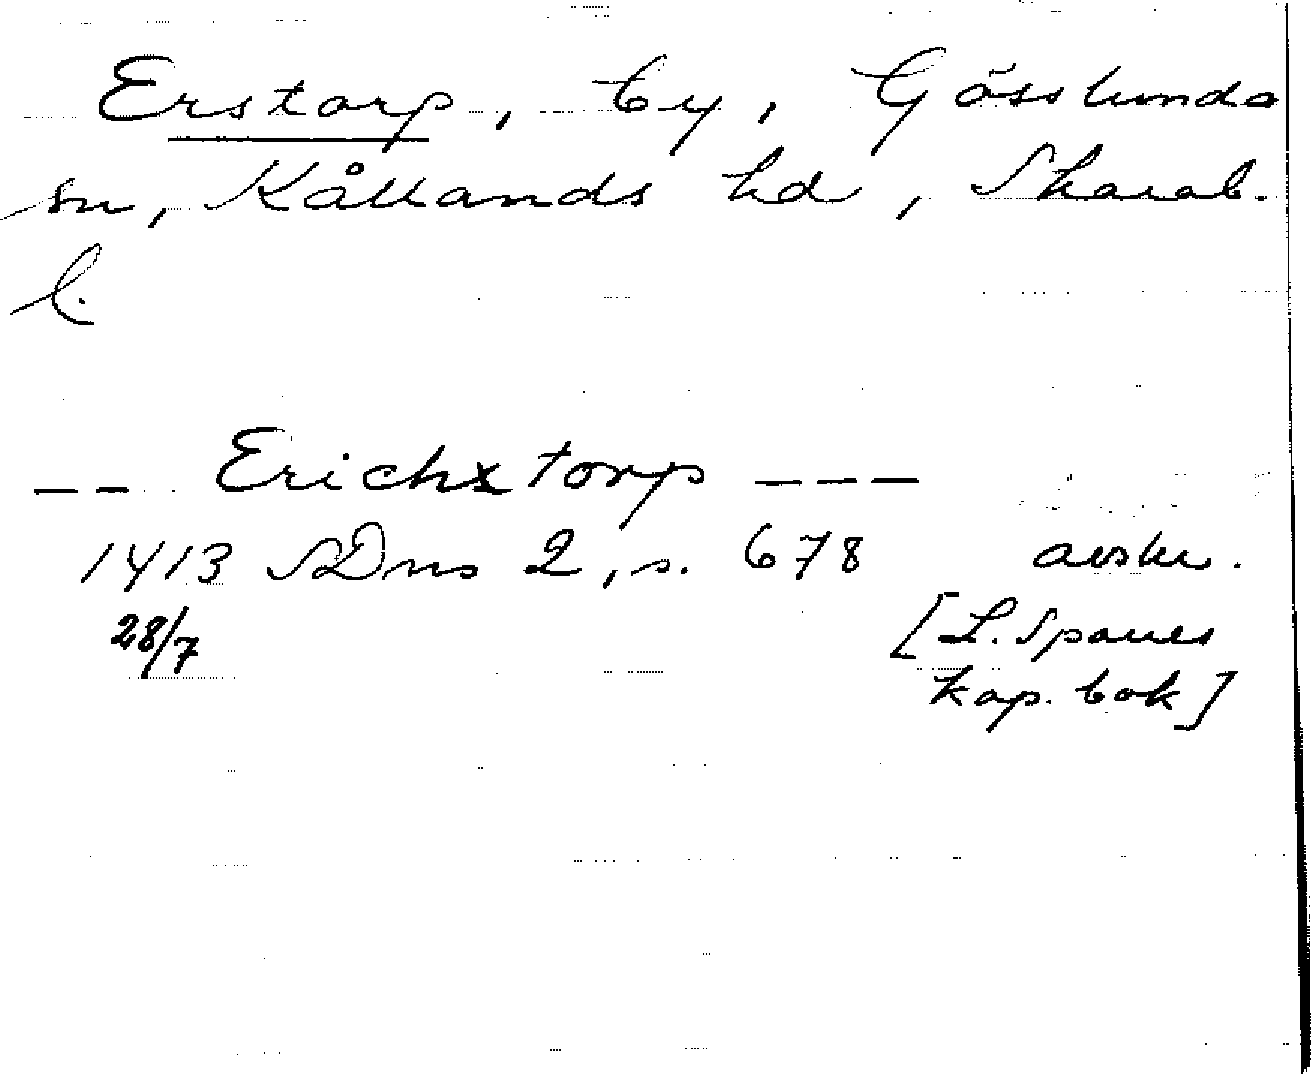 Erstorp, by, Gösslunda
sn, Kållands hd, Skarab.
l.
-- Erichxtorp ---
1413 SDns 2, s. 678 avskr.
28/7 [L. Sparres
kop. bok]